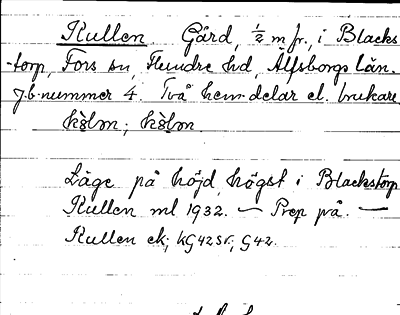 Kullen Gård, ½ m fr., i Blacks
-torp, Fors sn, Flundre hd, Älfsborgs län.
J.b.nummer 4. Två hem. delar el. brukare
Läge på höjd, högst i Blackstorp
Kullen ml 1932. — Prep på. —
Kullen ek; KG42Sr; G42.